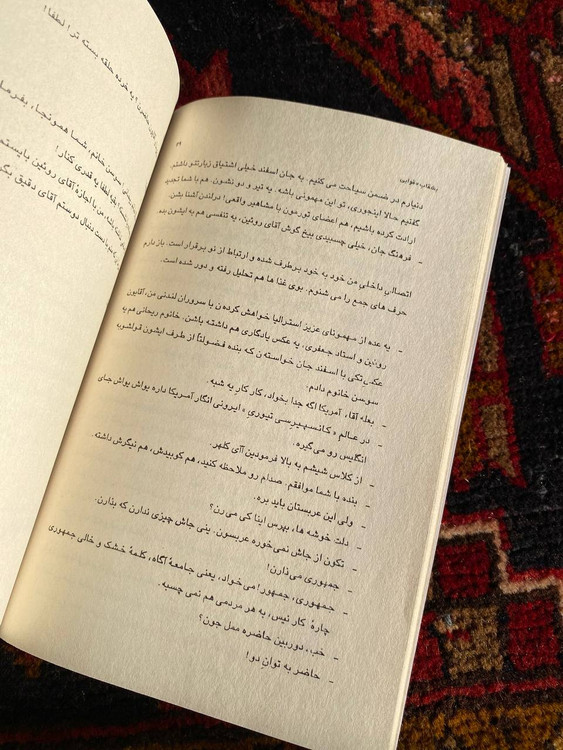 بشقاب هوایی
۳۹
دنیارم در ضمن سیاحت می کنیم. به جان اسفند خیلی اشتیاق زیارتتو داشتم.
گفتیم حالا اینجوری، تو این مهمونی باشه. یه تیر و دو نشون. هم با شما تجدید
ارادت کرده باشیم، هم اعضای تورمون با مشاهیر واقعی لندن آشنا بشن.
ـ فرهنگ جان، خیلی چسبیدی بیخ گوش آقای روئین، یه تنفسی هم به ایشون بده
اتصالیِ داخلیِ من خود به خود برطرف شده و ارتباط از نو برقرار است. باز دارم
حرف های جمع را می شنوم. بوی غذا ها هم تحلیل رفته و دور شده است.
ـ یه عده از مهمونای عزیز استرالیا خواهش کرده ن با سروران لندنی من، آقایون
روئین و استاد جعفری، یه عکس یادگاری هم داشته باشن. خانوم ریحانی هم یه
عکس تکی با اسفند جان خواسته ن که بنده فضولتاً از طرف ایشون قولشو به
سوسن خانوم دادم.
ـ بعله آقا، آمریکا اگه جدا بخواد، کار کارِ یه شبه.
ـ در عالمِ «کانسپیرسی تیوریِ» ایرونی انگار آمریکا داره یواش یواش جای
انگلیس رو می گیره.
ـ از کلاس شیشم به بالا فرمودین آآی کلهر.
ـ بنده با شما موافقم. صدام رو ملاحظه کنید، هم کوبیدش، هم نیگرش داشته.
ـ ولی این عربستان باید بره.
ـ دلت خوشه ها، بپرس اینا کی می رن؟
ـ تکون از جاش نمی خوره عربسون. ینی جاش چیزی ندارن که بذارن.
ـ جمهوری می ذارن!
ـ جمهوری، جمهور! می خواد، یعنی جامعهٔ آگاه، کلمهٔ خشک و خالی جمهوری
چارهٔ کار نیس، به هر مردمی هم نمی چسبه.
ـ خب، دوربین حاضره ممل جون؟
ـ حاضر به توانِ دو!